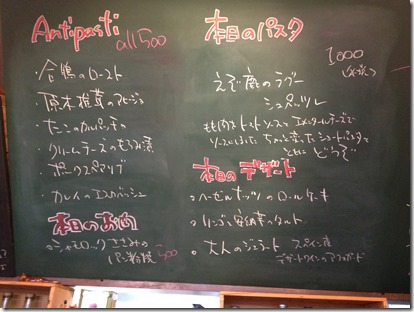 Antipasti all 500
・合鴨のロースト
・原木椎茸のアヒージョ
・たこのカルパッチョ
・クリームチーズのもろみ漬
・ポークスペアリブ
・カレイのエスカベッシュ
本日のお肉
・シャモロックささみの
パン粉焼 500
本日のパスタ
1000
えぞ鹿のラグー
シュペッツレ
トマトソースと
ソースにしました ちょっと変ったショートパスタと
ともに どうぞ
本日のデザート
・ヘーゼルナッツのロールケーキ
・リンゴと安納芋のタルト
・大人のジェラート スペイン産
デザートワインのアフォガード